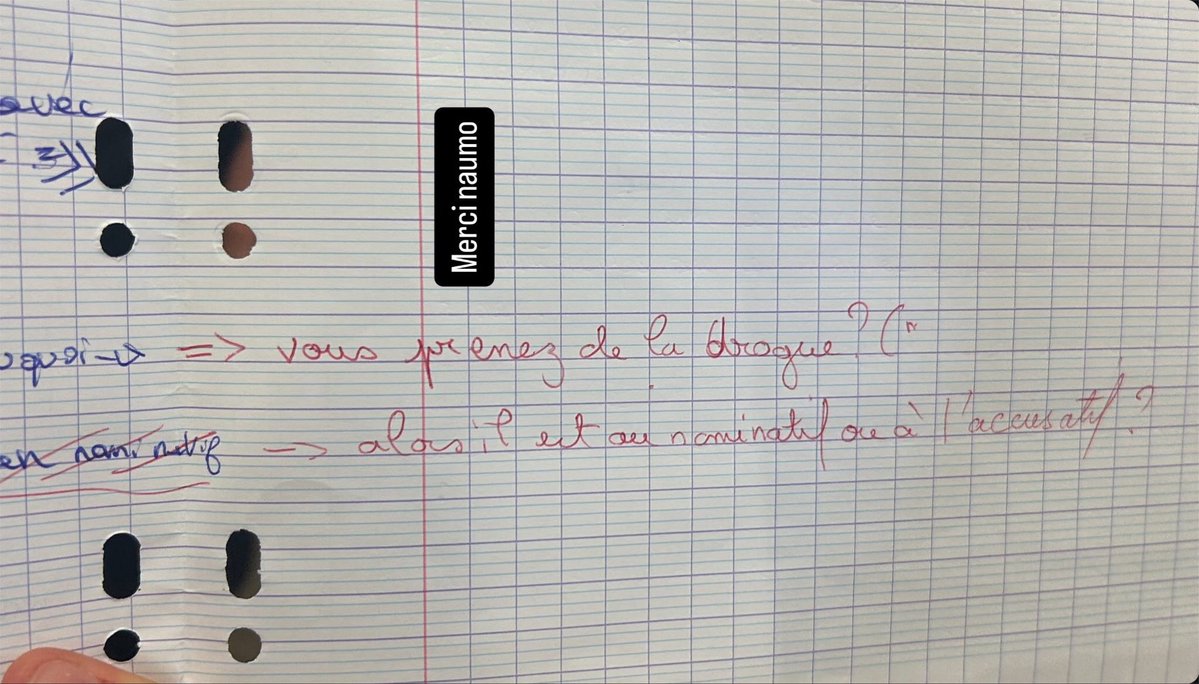 avec
Merci naumo
quoi → => vous prenez de la drogue? ("
en nominatif → alors il est au nominatif ou à l'accusatif?